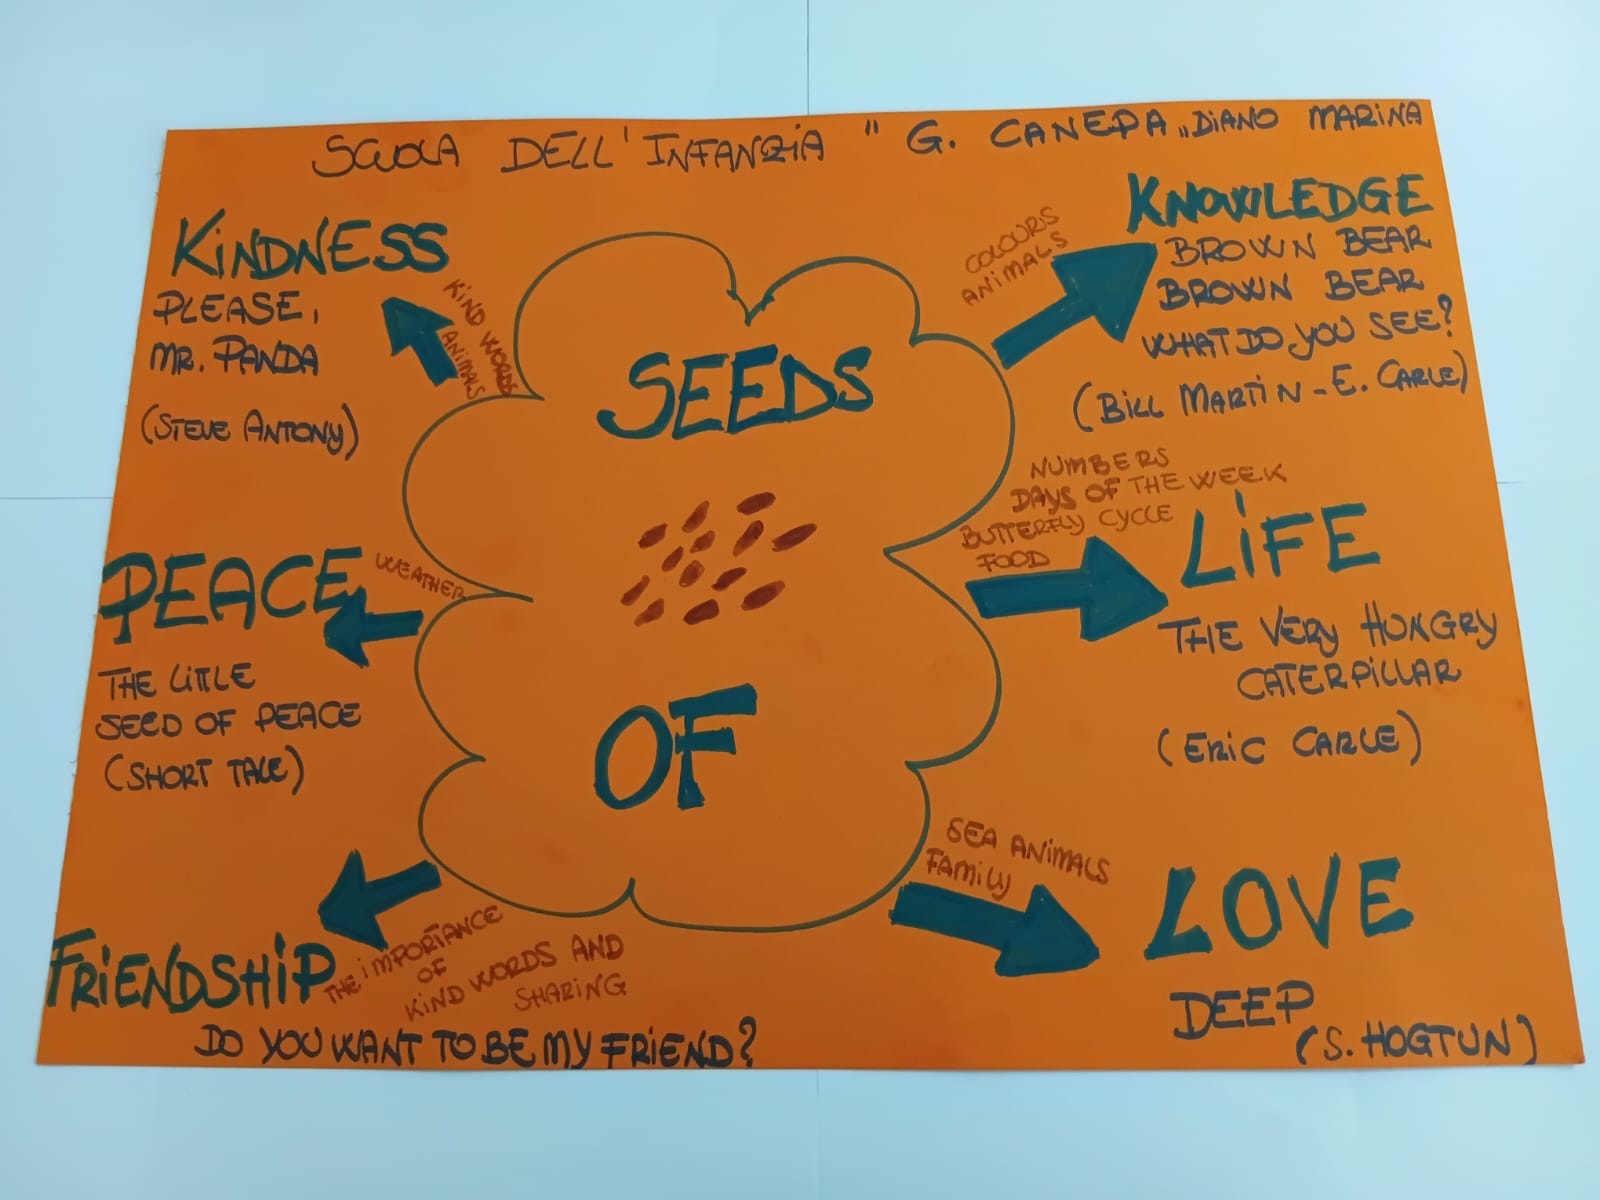 SCUOLA DELL'INFANZIA "G. CANEPA„ DIANO MARINA
KINDNESS
PLEASE,
MR. PANDA
(STEVE ANTONY)
KIND WORDS
ANIMALS
PEACE
WEATHER
THE LITTLE
SEED OF PEACE
(SHORT TALE)
FRIENDSHIP
THE IMPORTANCE
OF
KIND WORDS AND
SHARING
DO YOU WANT TO BE MY FRIEND?
SEEDS
OF
COLOURS
ANIMALS
KNOWLEDGE
BROWN BEAR
BROWN BEAR
WHAT DO YOU SEE?
(BILL MARTIN - E. CARLE)
NUMBERS
DAYS OF THE WEEK
BUTTERFLY CYCLE
FOOD
LIFE
THE VERY HUNGRY
CATERPILLAR
(ERIC CARLE)
SEA ANIMALS
FAMILY
LOVE
DEEP
(S. HOGTUN)